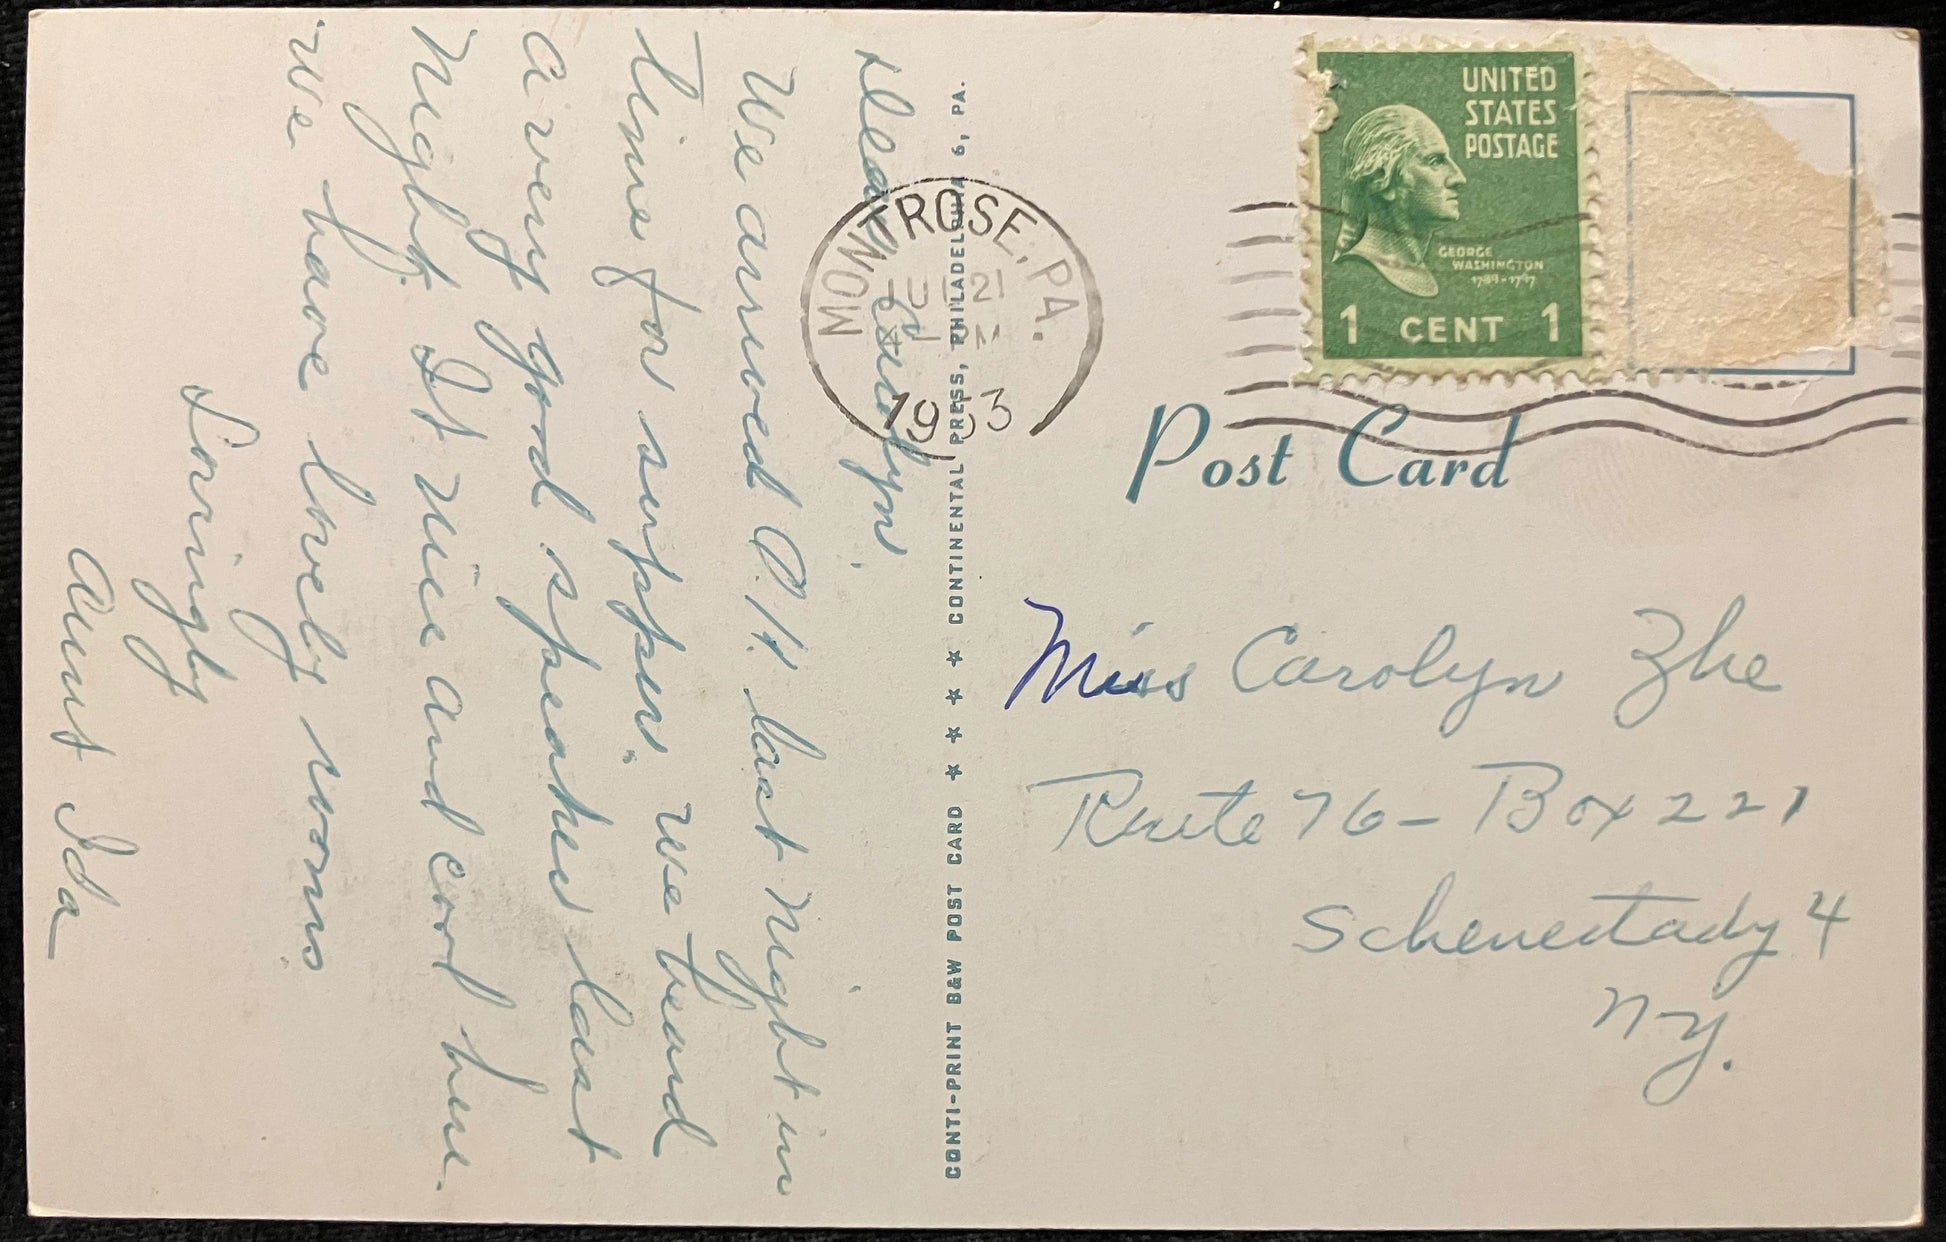 Dear Carolyn.
We arrived O.K. last night in
time for supper. We heard
a very good speaker last
Night. It nice and cool here.
We have lovely rooms
Lovingly
Aunt Ida
CONTI-PRINT B&W POST CARD ★ ★ ★ ★ CONTINENTAL PRESS, PHILADELPHIA 6, PA.
MONTROSE, PA.
21
PM
1953
UNITED
STATES
POSTAGE
GEORGE
WASHINGTON
1789-1797
1 CENT 1
Post Card
Miss Carolyn
Route 76 - Box 221
Schenectady 4
N-Y.